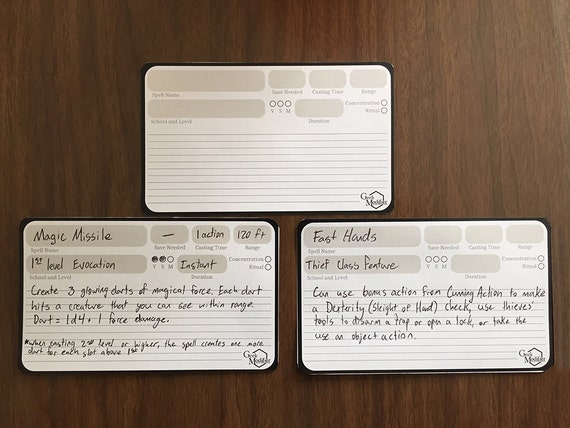 Spell Name
Save Needed
Casting Time
Range
School and Level
V S M
Duration
Concentration
Ritual
Geek
Modifest
Magic Missile
—
1 action
120 ft
Spell Name
Save Needed
Casting Time
Range
1st level Evocation
V S M
Instant
Concentration
Ritual
School and Level
Duration
Create 3 glowing darts of magical force. Each dart
hits a creature that you can see within range.
Dart = 1d4 + 1 force damage.
*when casting 2nd level or higher, the spell creates one more
dart for each slot above 1st
Geek
Modifest
Fast Hands
Spell Name
Save Needed
Casting Time
Range
Thief Class Feature
V S M
Concentration
Ritual
School and Level
Duration
Can use bonus action from Cunning Action to make
a Dexterity (Sleight of Hand) check, use thieves'
tools to disarm a trap or open a lock, or take the
use an object action.
Geek
Modifest